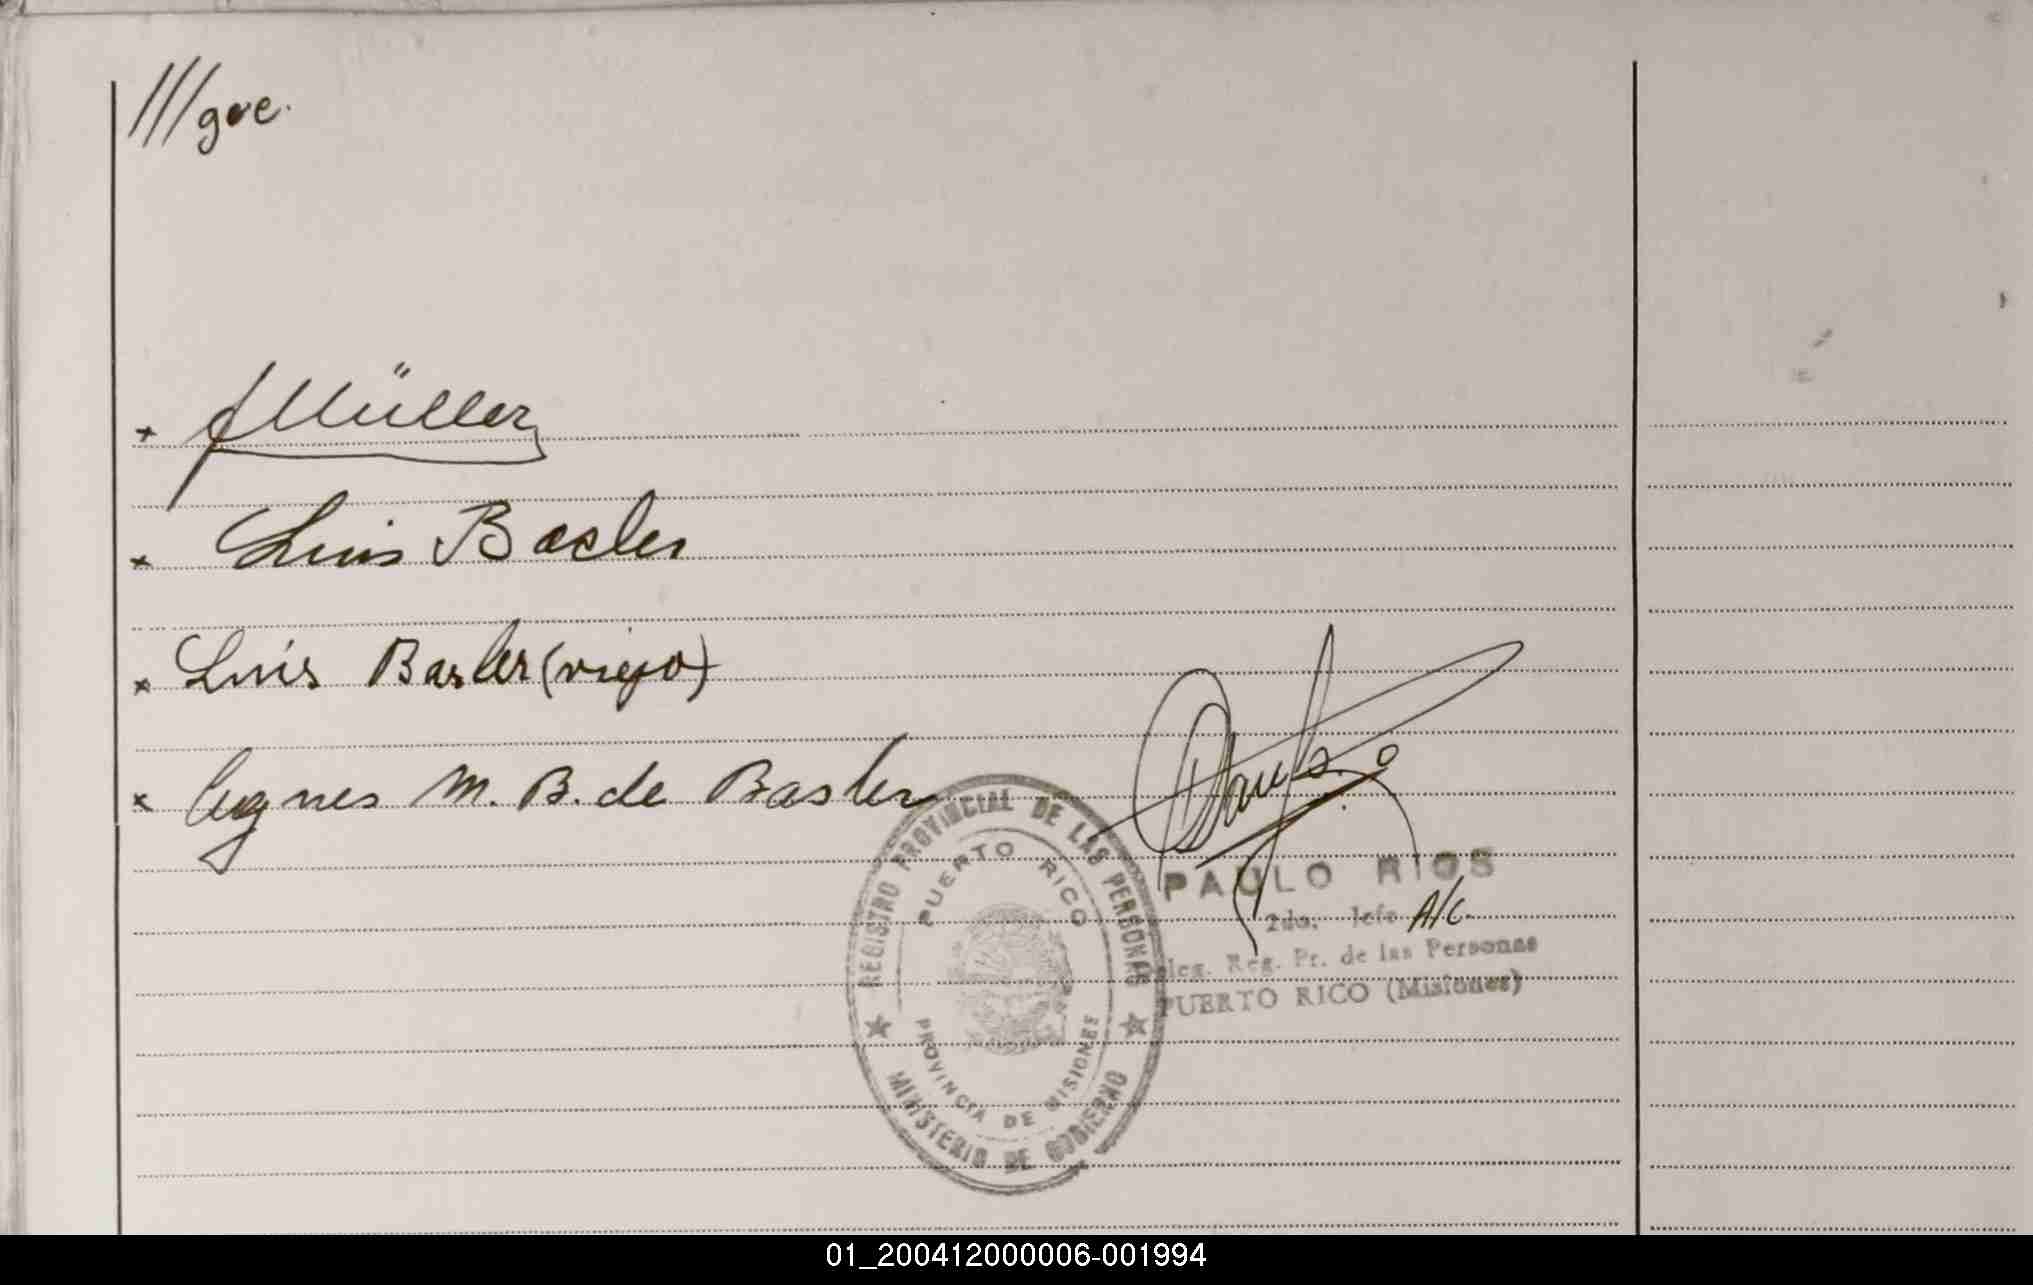 ///gue.
Müller
Luis Basler
Luis Basler (viejo)
Agnes M. B. de Basler
REGISTRO PROVINCIAL DE LAS PERSONAS
PUERTO RICO
PROVINCIA DE MISIONES
MINISTERIO DE GOBIERNO
PAULO RIOS
2do. Jefe A/C.
Deleg. Reg. Pr. de las Personas
PUERTO RICO (Misiones)
01_200412000006-001994